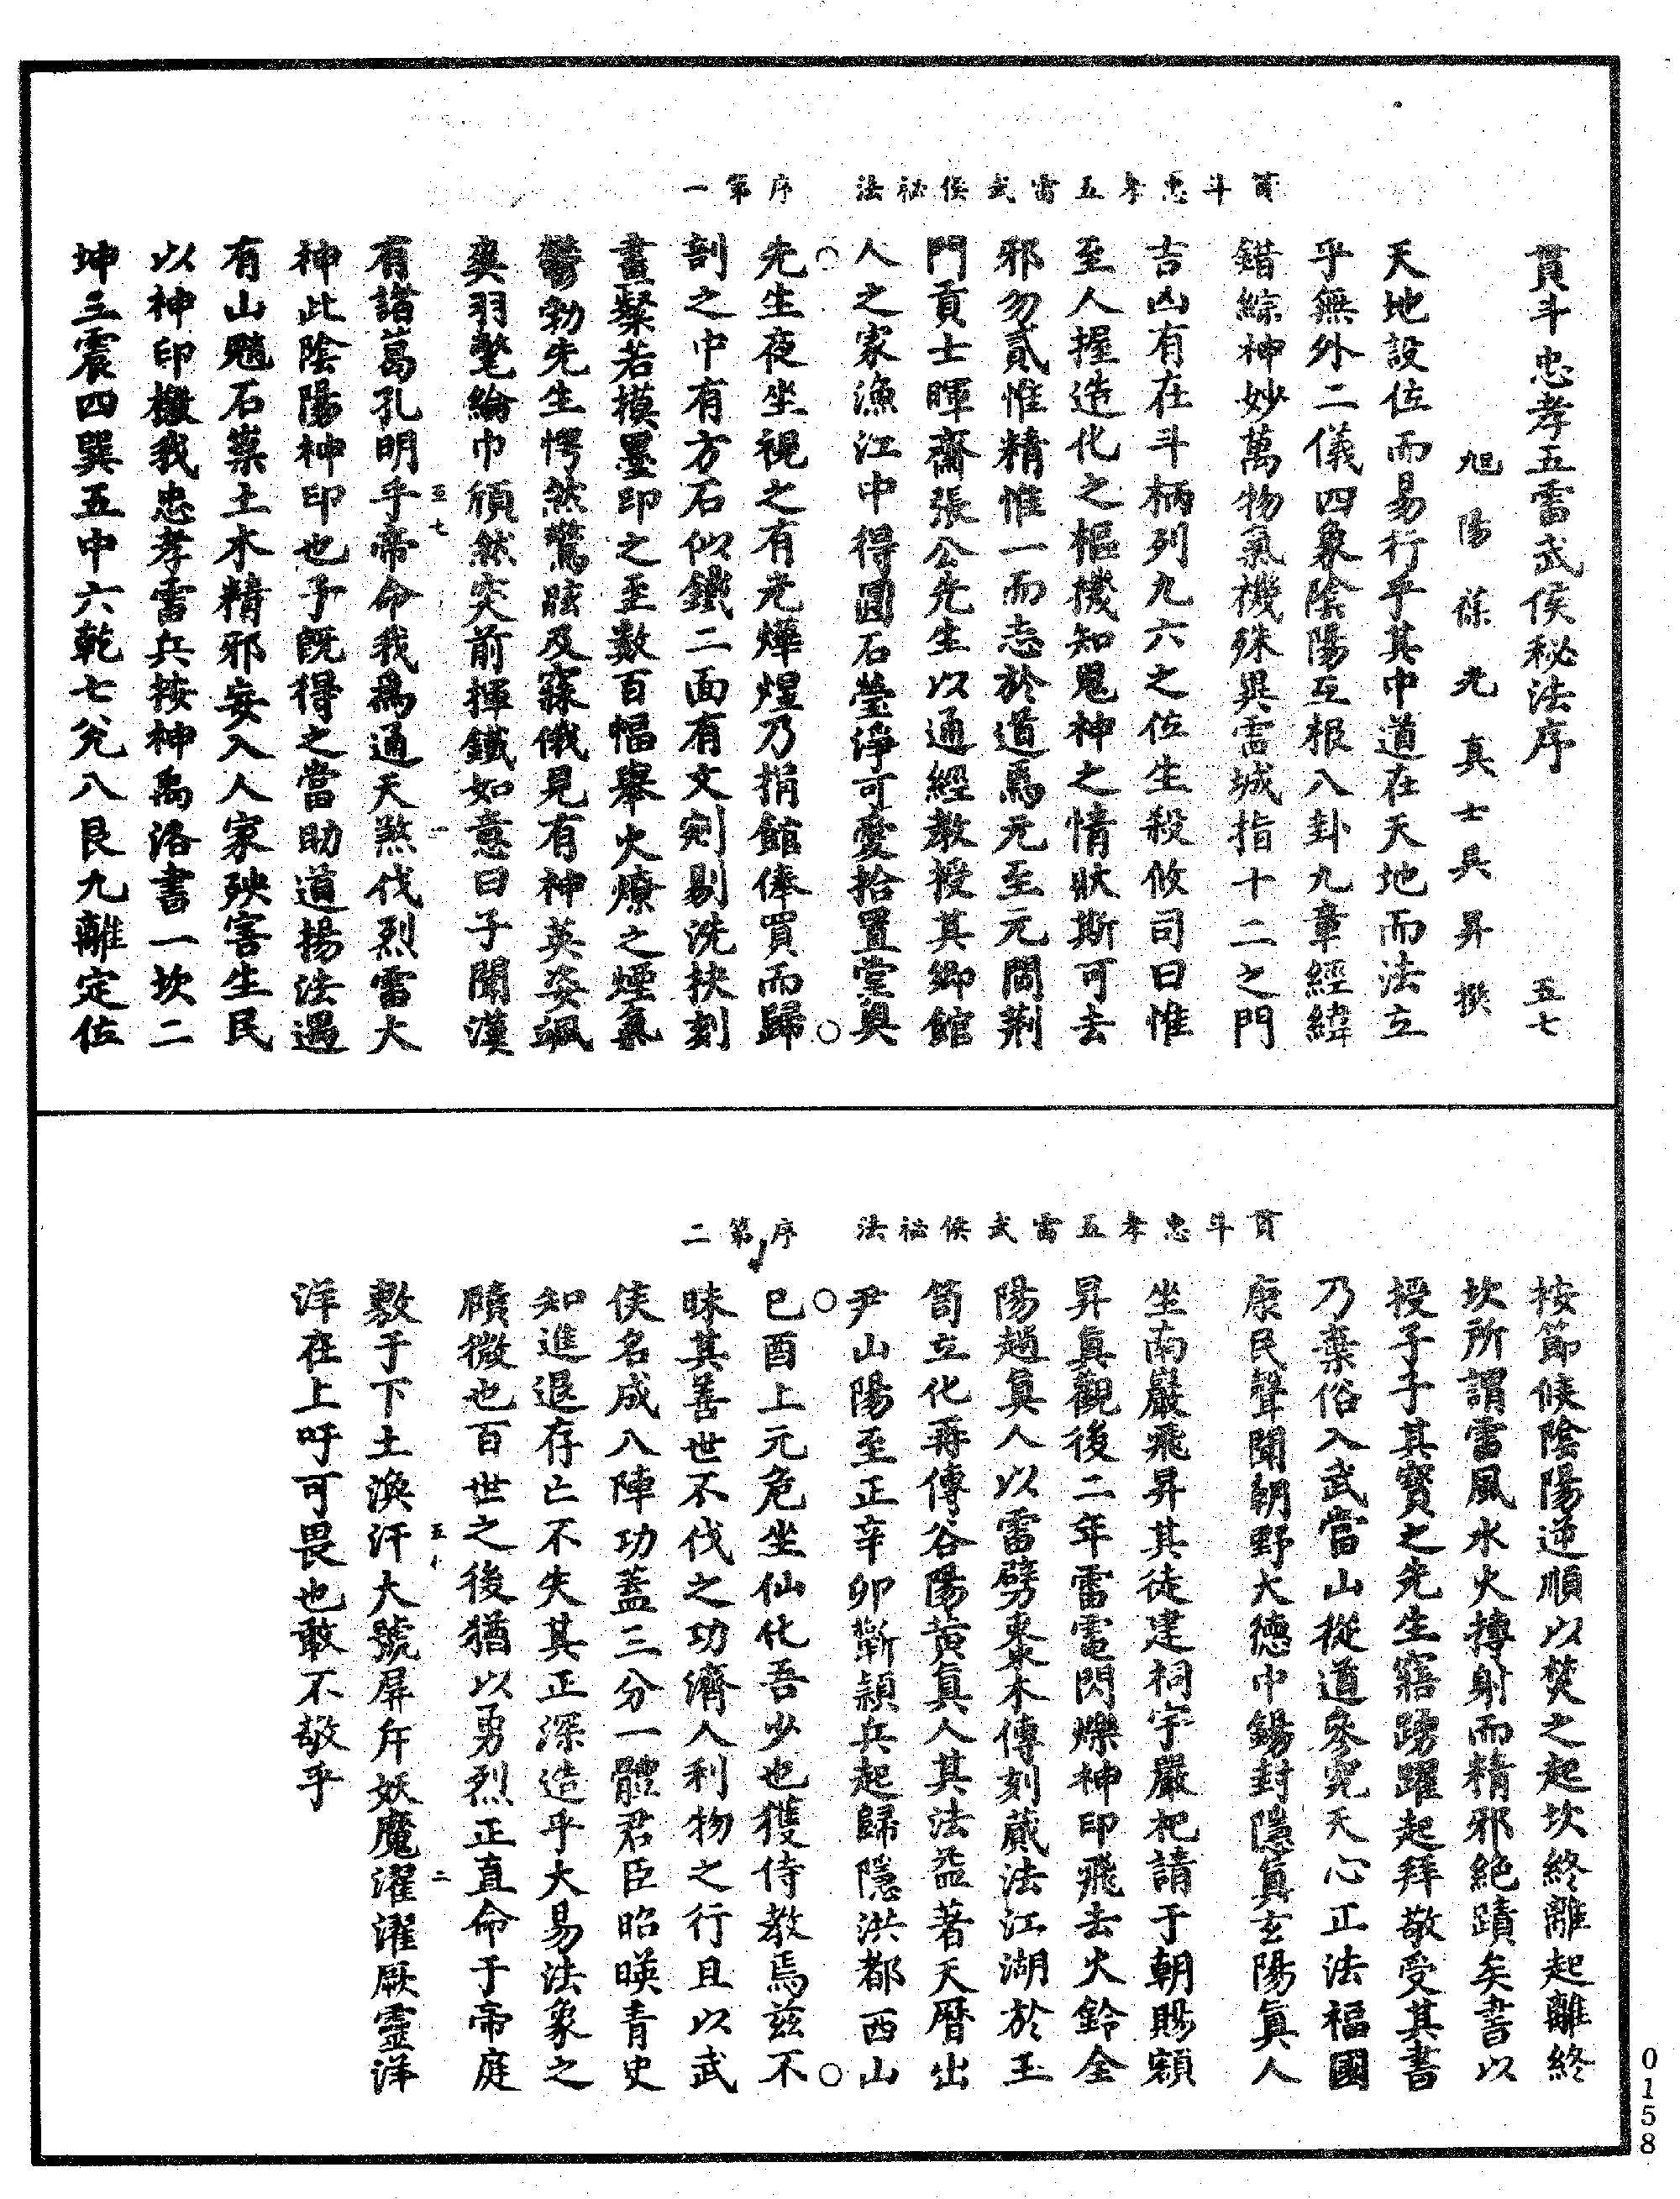 貫斗忠孝五雷武侯秘法序 五七
旭陽葆光真士吳昇撰
天地設位而易行乎其中道在天地而法立
乎無外二儀四象陰陽互根八卦九章經緯
錯綜神妙萬物氣機殊異雷城指十二之門
吉凶有在斗柄列九六之位生殺攸司曰惟
至人握造化之樞機知鬼神之情狀斯可去
邪勿貳惟精惟一而志於道焉元至元間荆
門貢士暉齋張公先生以通經教授其鄉館
人之家漁江中得圓石瑩淨可愛拾置堂奧
先生夜坐視之有光燁煜乃捐館俸買而歸
剖之中有方石似鐵二面有文剜剔洗抉刻
畫粲若摸墨印之至數百幅舉火燎之煙氣
鬱勃先生愕然驚眩及寐俄見有神英姿颯
爽羽氅綸巾頎然突前揮鐵如意曰子聞漢
有諸葛孔明乎帝命我為通天煞伐烈雷大
神此陰陽神印也予既得之當助道揚法遇
有山魈石藁土木精邪妄入人家殃害生民
以神印檄我忠孝雷兵按神禹洛書一坎二
坤三震四巽五中六乾七兌八艮九離定位
貫斗忠孝五雷武侯祕法 序第一
五七 一
按節候陰陽逆順以焚之起坎終離起離終
坎所謂雷風水火摶射而精邪絕蹟矣書以
授子子其寶之先生寤踴躍起拜敬受其書
乃棄俗入武當山從道參究天心正法福國
康民聲聞朝野大德中錫封隱真玄陽真人
坐南巖飛昇其徒建祠宇嚴祀請于朝賜額
昇真觀後二年雷電閃爍神印飛去火鈴全
陽趙真人以雷劈棗木傳刻蕆法江湖於玉
笥立化再傳谷陽黃真人其法益著天曆出
尹山陽至正辛卯蘄潁兵起歸隱洪都西山
已酉上元危坐仙化吾少也獲侍教焉茲不
昧其善世不伐之功濟人利物之行且以武
侯名成八陣功蓋三分一體君臣昭暎青史
知進退存亡不失其正深造乎大易法象之
賾微也百世之後猶以勇烈正直命于帝庭
敷于下土渙汗大號屏斥妖魔濯濯厥靈洋
洋在上吁可畏也敢不敬乎
貫斗忠孝五雷武侯祕法 序第二
二
0158